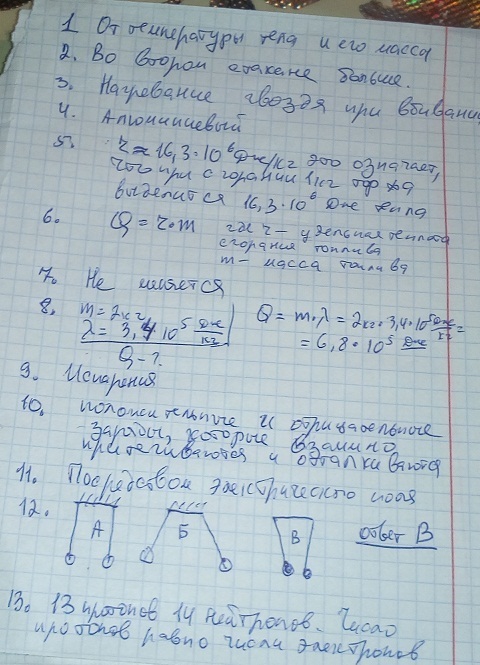 1 От температуры тела и его масса
2. Во втором стакане больше.
3. Нагревание гвоздя при вбивании
4. Алюминиевый
5. r ≈ 16,3·10⁶ Дж/кг это означает,
что при сгорании 1кг торфа
выделится 16,3·10⁶ Дж тепла
6. Q = r·m где r — удельная теплота
сгорания топлива
m — масса топлива
7. Не меняется
8. m = 2кг Q = m·λ = 2кг·3,4·10⁵ Дж/кг =
λ = 3,4·10⁵ Дж/кг = 6,8·10⁵ Дж
Q - ?
9. Испарения
10. положительные и отрицательные
заряды, которые взаимно
притягиваются и отталкиваются
11. Посредством электрического поля
12. А Б В ответ В
13. 13 протонов 14 нейтронов. Число
протонов равно числу электронов